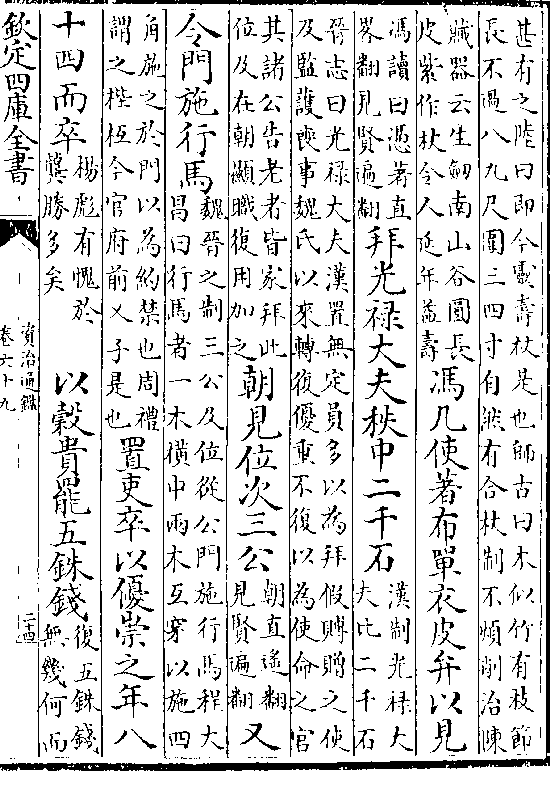 甚有之陸曰即今靈壽杖是也師古曰木似竹有枝節
長不過八九尺圍三四寸自然有合杖制不煩削治陳
藏器云生劒南山谷圓長
皮紫作杖令人延年益壽
馮几使著布單衣皮弁以見
馮讀曰憑著直
畧翻見賢遍翻
拜光禄大夫秩中二千石
漢制光禄大
夫比二千石
晉志曰光禄大夫漢置無定員多以為拜假賻贈之使
及監護喪事魏氏以來轉復優重不復以為使命之官
其諸公告老者皆家拜此
位及在朝顯職復用加之
朝見位次三公
朝直遥翻
見賢遍翻
又
令門施行馬
魏晉之制三公及位從公門施行馬程大
昌曰行馬者一木横中兩木互穿以施四
角施之於門以為約禁也周禮
謂之梐枑今官府前乂子是也
置吏卒以優崇之年八
十四而卒
楊彪有愧於
龔勝多矣
以穀貴罷五銖錢
復五銖錢
無幾何而
欽定四庫全書
資治通鑑
卷六十九
二十四